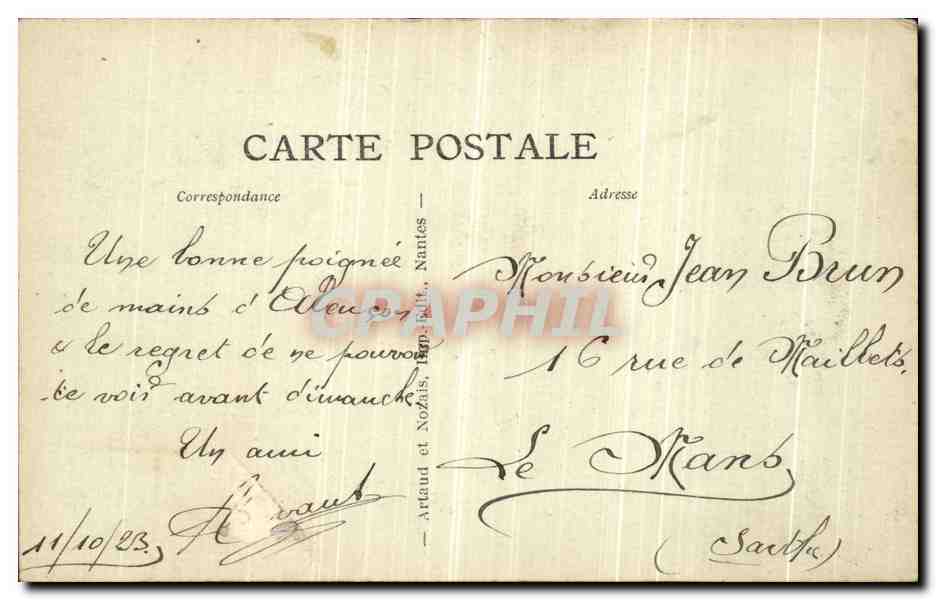 CARTE POSTALE
Correspondance
Adresse
Une bonne poignée
de mains d'Alençon
& le regret de ne pouvoir
te voir avant dimanche.
Un ami
11/10/23.
— Artaud et Nozais, Imp.-Edit., Nantes —
Monsieur Jean Brun
16 rue de Maillets.
Le Mans
(Sarthe)
CPAPHIL